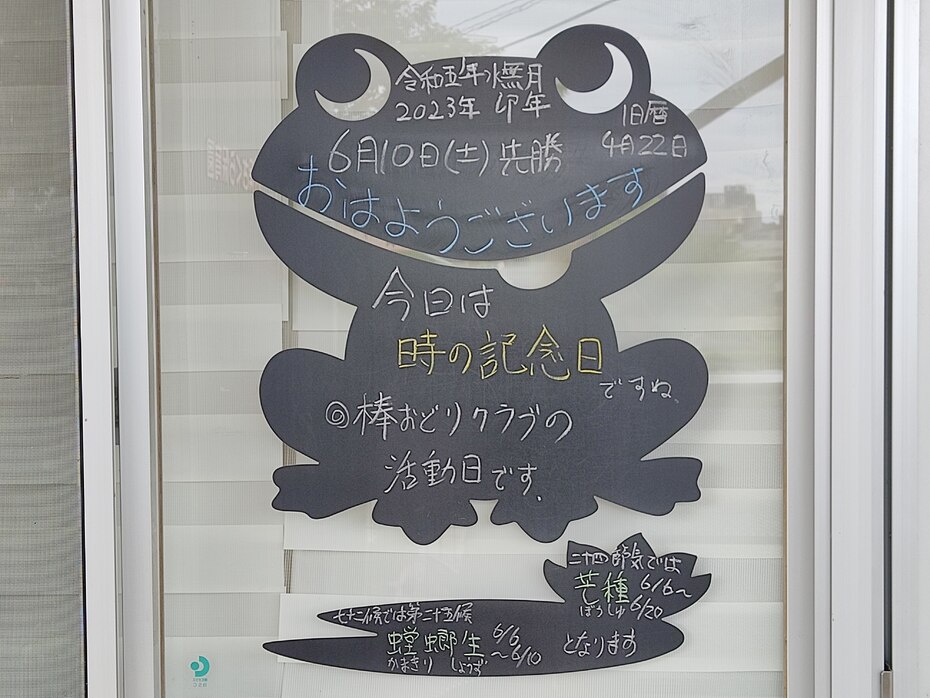 令和五年水無月
2023年 卯年
旧暦
4月22日
6月10日(土)先勝
おはようございます
今日は
時の記念日
ですね、
◎棒おどりクラブの
活動日です、
二十四節気では
芒種 6/6~
ぼうしゅ 6/20
七十二候では第二十五候
螳螂生 6/6
~6/10
かまきり しょうず
となります